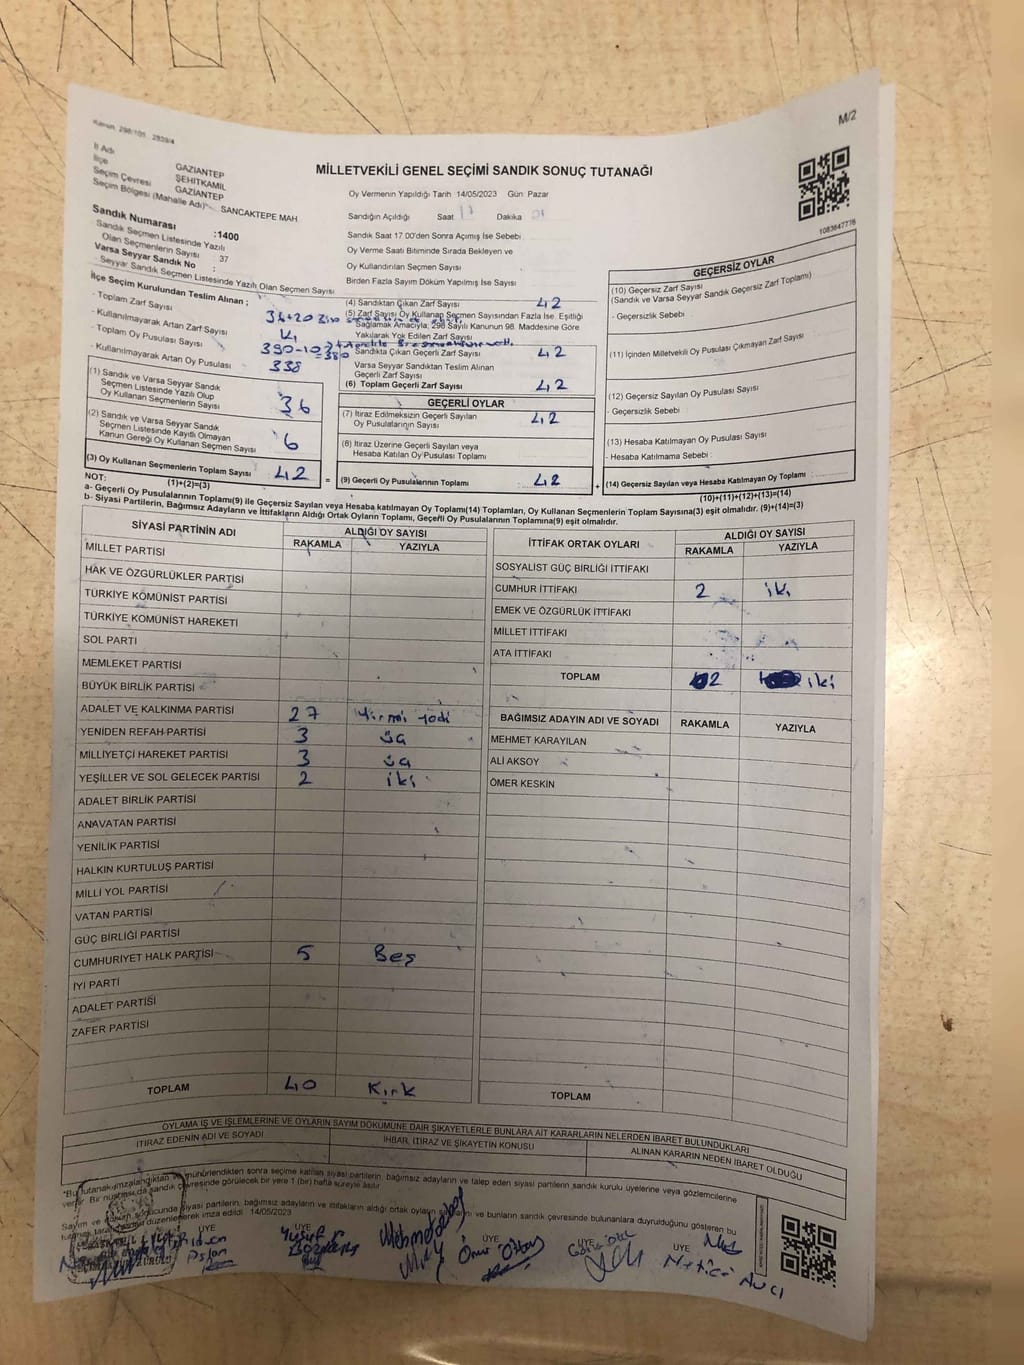 M/2
Kanun. 298/105, 2839/4
İl Adı GAZİANTEP
İlçe ŞEHİTKAMİL
Seçim Çevresi GAZİANTEP
Seçim Bölgesi (Mahalle Adı) SANCAKTEPE MAH
Sandık Numarası :1400
Sandık Seçmen Listesinde Yazılı
Olan Seçmenlerin Sayısı : 37
Varsa Seyyar Sandık No :
Seyyar Sandık Seçmen Listesinde Yazılı Olan Seçmen Sayısı
MİLLETVEKİLİ GENEL SEÇİMİ SANDIK SONUÇ TUTANAĞI
Oy Vermenin Yapıldığı Tarih 14/05/2023 Gün Pazar
Sandığın Açıldığı Saat 17 Dakika
Sandık Saat 17.00'den Sonra Açımış İse Sebebi
Oy Verme Saati Bitiminde Sırada Bekleyen ve
Oy Kullandırılan Seçmen Sayısı
Birden Fazla Sayım Döküm Yapılmış İse Sayısı
1083647776
İlçe Seçim Kurulundan Teslim Alınan ;
- Toplam Zarf Sayısı
- Kullanılmayarak Artan Zarf Sayısı
- Toplam Oy Pusulası Sayısı 390-10
=380
- Kullanılmayarak Artan Oy Pusulası 338
(1) Sandık ve Varsa Seyyar Sandık
Seçmen Listesinde Yazılı Olup
Oy Kullanan Seçmenlerin Sayısı 36
(2) Sandık ve Varsa Seyyar Sandık
Seçmen Listesinde Kayıtlı Olmayan
Kanun Gereği Oy Kullanan Seçmen Sayısı 6
(3) Oy Kullanan Seçmenlerin Toplam Sayısı 42
(1)+(2)=(3)
(4) Sandıktan Çıkan Zarf Sayısı 42
(5) Zarf Sayısı Oy Kullanan Seçmen Sayısından Fazla İse, Eşitliği
Sağlamak Amacıyla; 298 Sayılı Kanunun 98. Maddesine Göre
Yakılarak Yok Edilen Zarf Sayısı
Sandıkta Çıkan Geçerli Zarf Sayısı 42
Varsa Seyyar Sandıktan Teslim Alınan
Geçerli Zarf Sayısı
(6) Toplam Geçerli Zarf Sayısı 42
GEÇERLİ OYLAR
(7) İtiraz Edilmeksizin Geçerli Sayılan
Oy Pusulalarının Sayısı 42
(8) İtiraz Üzerine Geçerli Sayılan veya
Hesaba Katılan Oy Pusulası Toplamı
= (9) Geçerli Oy Pusulalarının Toplamı : 42 +
GEÇERSİZ OYLAR
(10) Geçersiz Zarf Sayısı
(Sandık ve Varsa Seyyar Sandık Geçersiz Zarf Toplamı)
- Geçersizlik Sebebi
(11) İçinden Milletvekili Oy Pusulası Çıkmayan Zarf Sayısı
(12) Geçersiz Sayılan Oy Pusulası Sayısı
- Geçersizlik Sebebi
(13) Hesaba Katılmayan Oy Pusulası Sayısı
- Hesaba Katılmama Sebebi :
(14) Geçersiz Sayılan veya Hesaba Katılmayan Oy Toplamı
(10)+(11)+(12)+(13)=(14)
NOT:
a- Geçerli Oy Pusulalarının Toplamı(9) ile Geçersiz Sayılan veya Hesaba katılmayan Oy Toplamı(14) Toplamları, Oy Kullanan Seçmenlerin Toplam Sayısına(3) eşit olmalıdır. (9)+(14)=(3)
b- Siyasi Partilerin, Bağımsız Adayların ve İttifakların Aldığı Ortak Oyların Toplamı, Geçerli Oy Pusulalarının Toplamına(9) eşit olmalıdır.
SİYASİ PARTİNİN ADI ALDIĞI OY SAYISI
RAKAMLA YAZIYLA
MİLLET PARTİSİ
HAK VE ÖZGÜRLÜKLER PARTİSİ
TÜRKİYE KOMÜNİST PARTİSİ
TÜRKİYE KOMÜNİST HAREKETİ
SOL PARTİ
MEMLEKET PARTİSİ
BÜYÜK BİRLİK PARTİSİ
ADALET VE KALKINMA PARTİSİ 27 Yirmi Yedi
YENİDEN REFAH PARTİSİ 3 üç
MİLLİYETÇİ HAREKET PARTİSİ 3 üç
YEŞİLLER VE SOL GELECEK PARTİSİ 2 iki
ADALET BİRLİK PARTİSİ
ANAVATAN PARTİSİ
YENİLİK PARTİSİ
HALKIN KURTULUŞ PARTİSİ
MİLLİ YOL PARTİSİ
VATAN PARTİSİ
GÜÇ BİRLİĞİ PARTİSİ
CUMHURİYET HALK PARTİSİ 5 Beş
İYİ PARTİ
ADALET PARTİSİ
ZAFER PARTİSİ
TOPLAM 40 Kırk
İTTİFAK ORTAK OYLARI ALDIĞI OY SAYISI
RAKAMLA YAZIYLA
SOSYALİST GÜÇ BİRLİĞİ İTTİFAKI
CUMHUR İTTİFAKI 2 iki
EMEK VE ÖZGÜRLÜK İTTİFAKI
MİLLET İTTİFAKI
ATA İTTİFAKI
TOPLAM 2 iki
BAĞIMSIZ ADAYIN ADI VE SOYADI RAKAMLA YAZIYLA
MEHMET KARAYILAN
ALİ AKSOY
ÖMER KESKİN
TOPLAM
OYLAMA İŞ VE İŞLEMLERİNE VE OYLARIN SAYIM DÖKÜMÜNE DAİR ŞİKAYETLERLE BUNLARA AİT KARARLARIN NELERDEN İBARET BULUNDUKLARI
İTİRAZ EDENİN ADI VE SOYADI İHBAR, İTİRAZ VE ŞİKAYETİN KONUSU ALINAN KARARIN NEDEN İBARET OLDUĞU
"Bu tutanak imzalandıktan ve mühürlendikten sonra seçime katılan siyasi partilerin, bağımsız adayların ve talep eden siyasi partilerin sandık kurulu üyelerine veya gözlemcilerine
verilir. Bir nüshası da sandık çevresinde görülecek bir yere 1 (bir) hafta süreyle asılır
Sayım ve sonucunda siyasi partilerin, bağımsız adayların ve ittifakların aldığı ortak oyların ve bunların sandık çevresinde bulunanlara duyrulduğunu gösteren bu
düzenlenerek imza edildi. 14/05/2023
ÜYE ÜYE ÜYE ÜYE ÜYE
Aslan Yusuf Mehmet Ömür Hatice Avcı